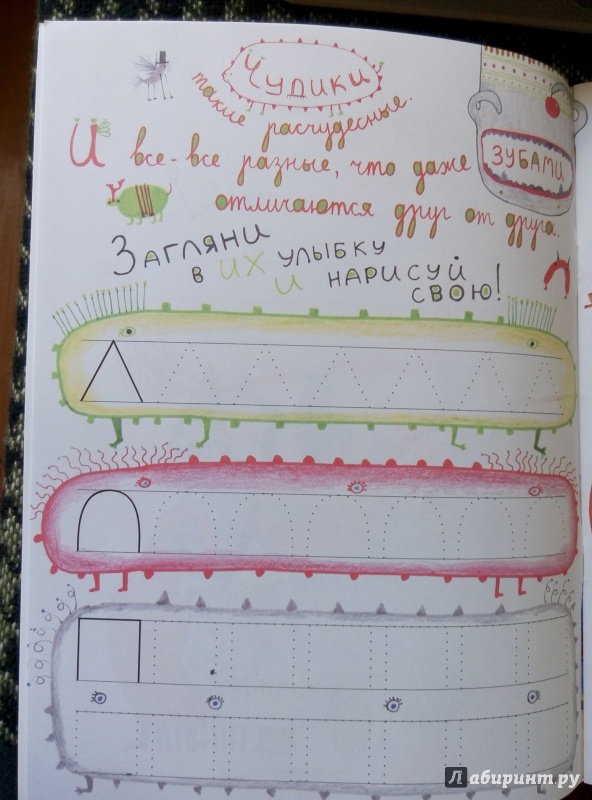 Чудики
такие расчудесные.
И все-все разные, что даже ЗУБАМИ
отличаются друг от друга.
ЗАГЛЯНИ
В ИХ УЛЫБКУ
И НАРИСУЙ
СВОЮ!
Лабиринт.ру